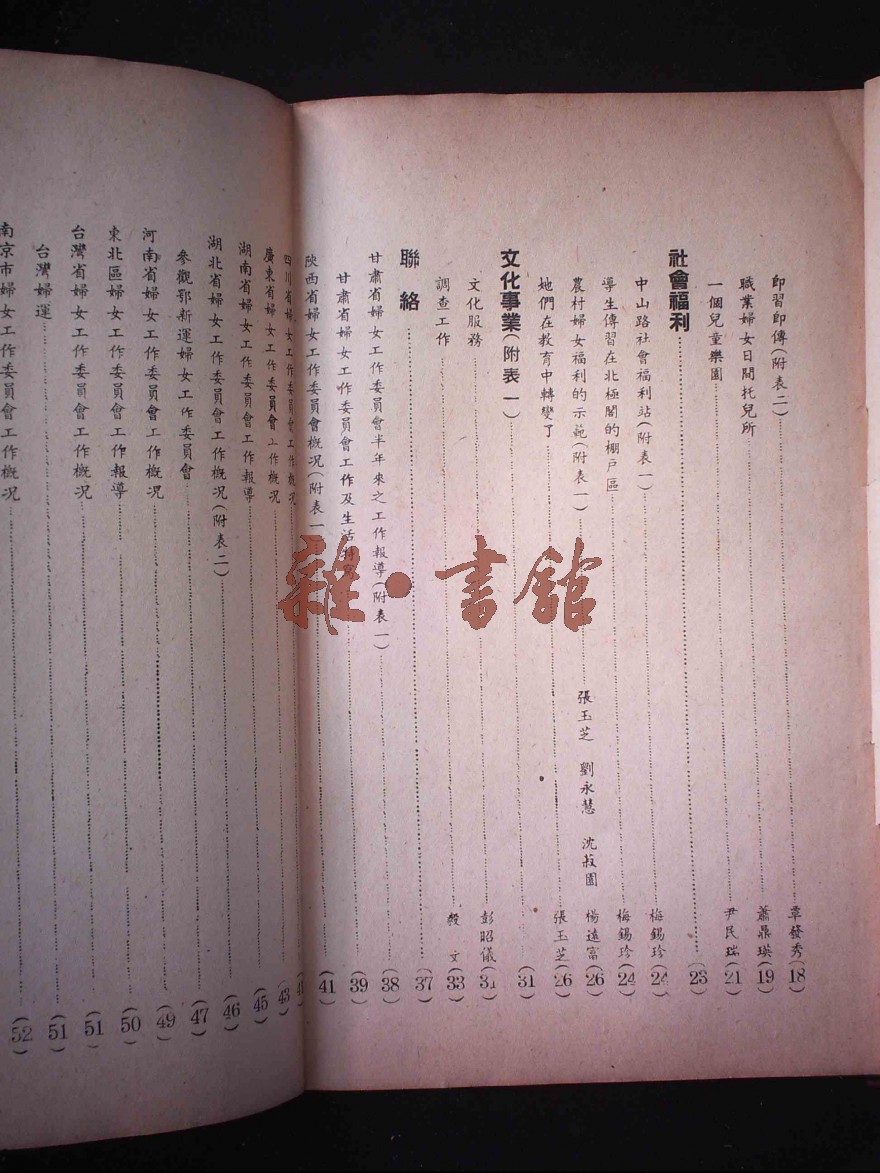 即習即傳(附表二)……覃發秀(18)
職業婦女日間托兒所……蕭鼎瑛(19)
一個兒童樂園……尹民瑞(21)
社會福利……(23)
中山路社會福利站(附表一)……梅錫珍(24)
導生傳習在北極閣的棚戶區……梅錫珍(24)
農村婦女福利的示範(附表一)……張玉芝 劉永慧 沈菽園 楊遠富(26)
她們在教育中轉變了……張玉芝(26)
文化事業(附表一)……(31)
文化服務……彭昭儀(31)
調查工作……毅文(33)
聯絡……(37)
甘肅省婦女工作委員會半年來之工作報導(附表一)……(38)
甘肅省婦女工作委員會工作及生活……(39)
陝西省婦女工作委員會概況(附表一……(41)
四川省婦女工作委員會工作概况……
廣東省婦女工作委員會工作概况……(43)
湖南省婦女工作委員會工作報導……(45)
湖北省婦女工作委員會工作概況(附表二)……(46)
參觀鄂新運婦女工作委員會……(47)
河南省婦女工作委員會工作概況……(49)
東北區婦女工作委員會工作報導……(50)
台灣省婦女工作委員會工作概况……(51)
台灣婦運……(51)
南京市婦女工作委員會工作概况……(52)
雜·書館